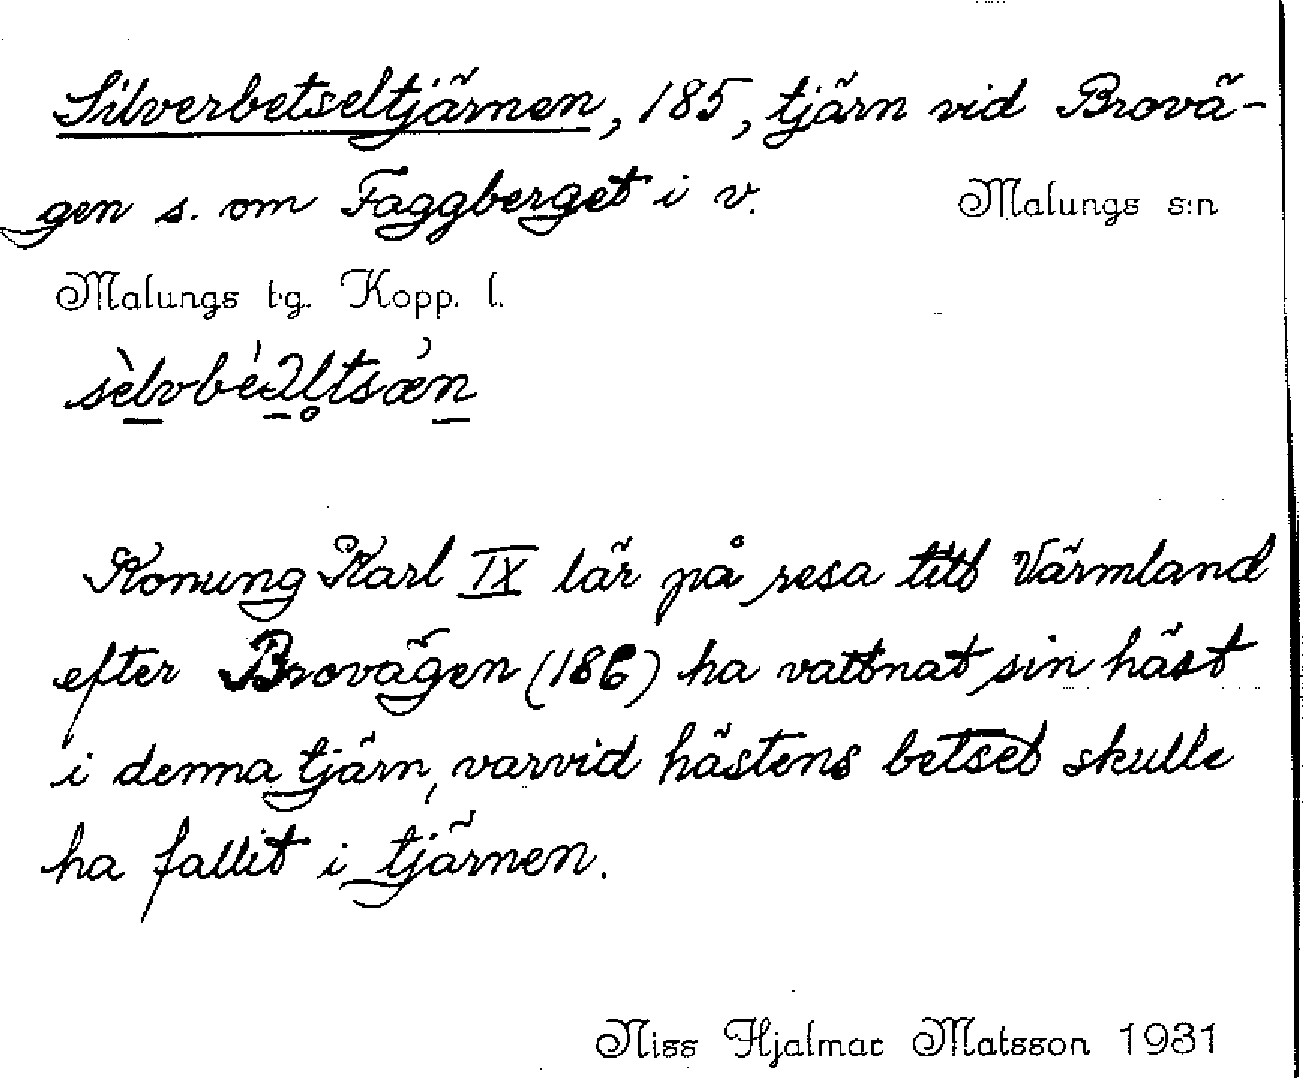 Silverbetseltjärnen, 185, tjärn vid Brovä-
gen s. om Faggberget i v.
Malungs s:n
Malungs tg. Kopp. l.
Konung Karl IX lär på resa till Värmland
efter Brovägen (186) ha vattnat sin häst
i denna tjärn, varvid hästens betsel skulle
ha fallit i tjärnen.
Niss Hjalmar Matsson 1931